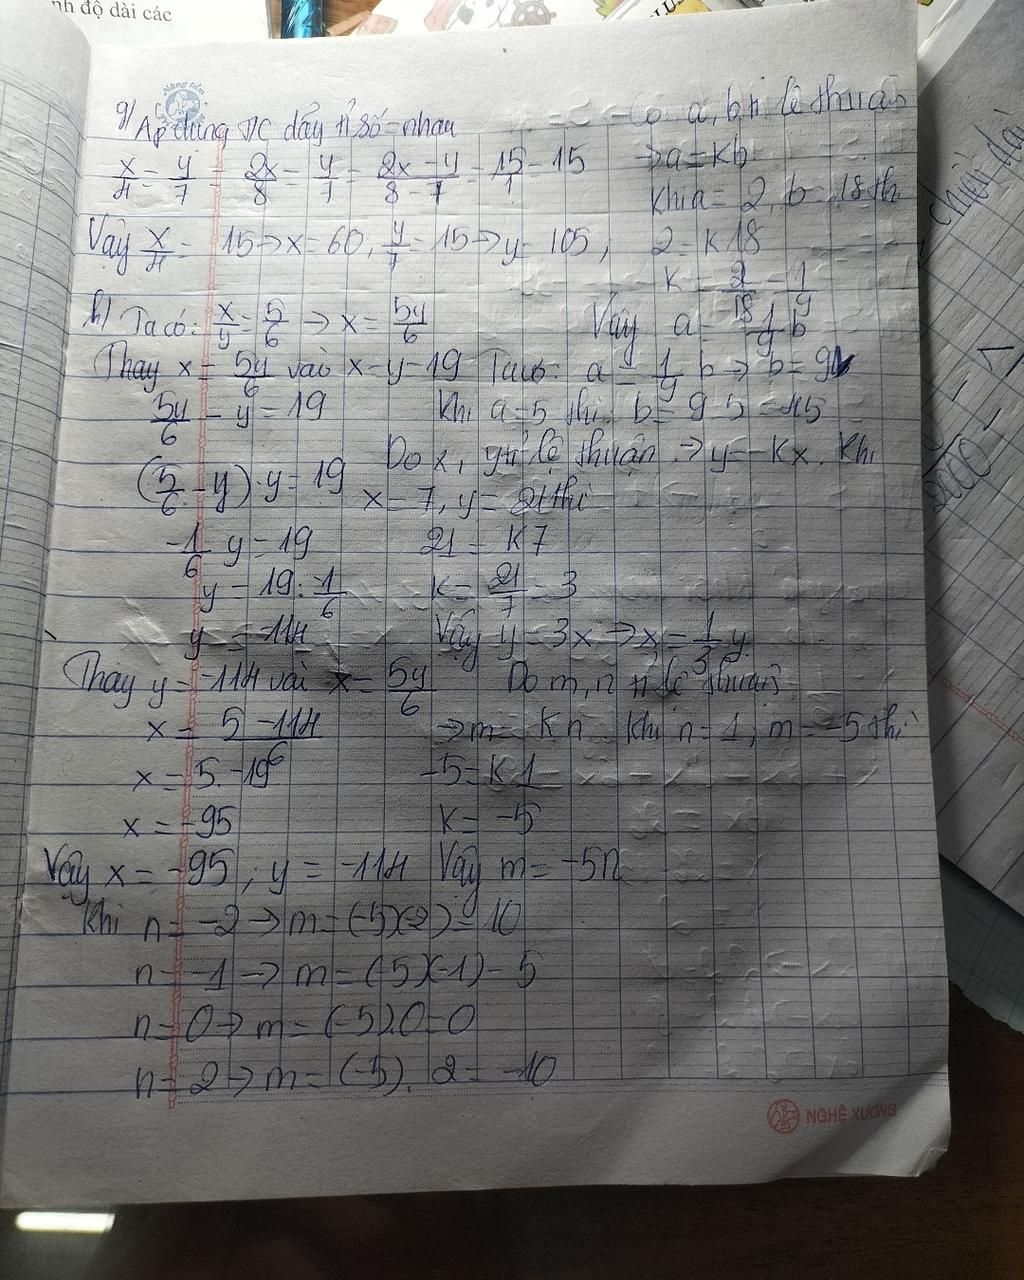 nh độ dài các
g) Áp dụng TC dãy tỉ số = nhau
x/4 = y/7 = 2x/8 = y/7 = 2x-y/8-7 = 15/1 = 15
Vậy x/4 = 15 → x = 60, y/7 = 15 → y = 105,
h) Ta có: x/y = 5/6 → x = 5y/6
Thay x = 5y/6 vào x-y=19
5y/6 - y = 19
(5/6 - y) . y = 19
-1/6 y = 19
y = 19 : 1/6
y = -114
Thay y = -114 vài x = 5y/6
x = 5 -114/6
x = 5. -19
x = -95
Vậy x = -95 ; y = -114
a, b tỉ lệ thuận
→ a = Kb
Khi a = 2, b = 18 thì
2 = K 18
K = 2/18 = 1/9
Vậy a = 1/9 b
Ta có: a = 1/9 b → b = 9
Khi a = 5 thì b = 9 . 5 = 45
Do x, y tỉ lệ thuận → y = Kx. Khi
x = 7, y = 21 thì
21 = K7
K = 21/7 = 3
Vậy y = 3x → x = 1/3 y.
Do m, n tỉ lệ thuận
→ m = Kn Khi n = 1, m = -5 thì
-5 = K1
K = -5
Vậy m = -5n
Khi n = -2 → m = (-5)(-2) = 10
n = -1 → m = (-5)(-1) = 5
n = 0 → m = (-5).0 = 0
n = 2 → m = (-5). 2 = -10
NGHỆ XƯƠNG
Chiều dài
2000